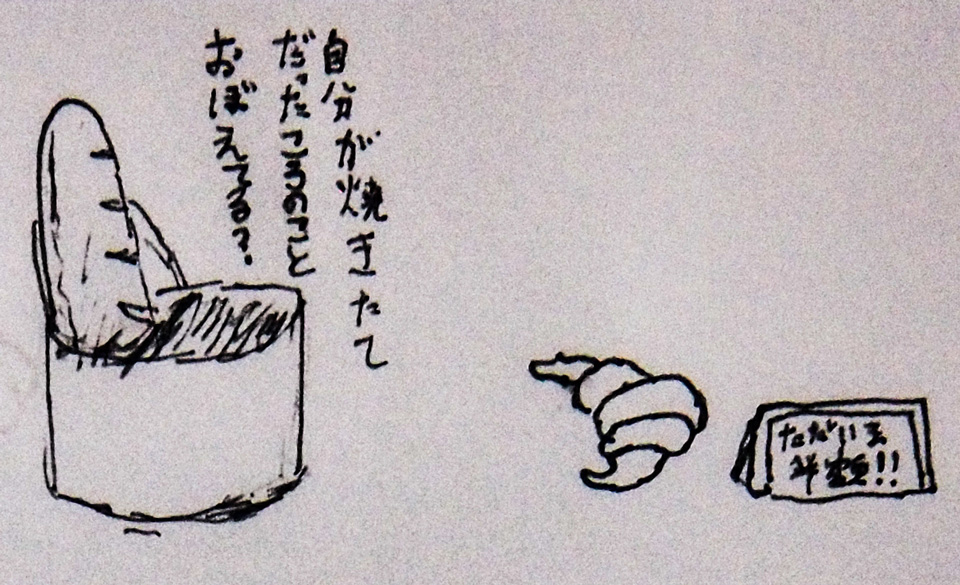 自分が焼きたて
だったころのこと
おぼえてる?
ただいま
半額!!